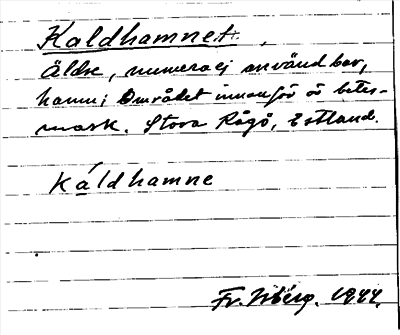 Kaldhamnet.
Äldre, numera ej användbar,
hamn; Området innanför är betes-
mark. Stora Rågö, Estland.
Káldhamne
Fr. Wiberg. 1944.